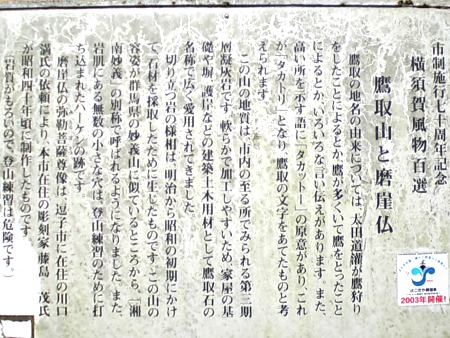 市制施行七十周年記念
横須賀風物百選
鷹取山と磨崖仏
鷹取の地名の由来については、太田道灌が鷹狩り
をしたことによるとか、鷹が多くいて鷹をとったこと
によるとか、いろいろな言い伝えがあります。また、
高い所を示す語に「タカットー」の原意があり、これ
が、「タカトリ」となり、鷹取の文字をあてたものと考
えられます。
この山の地質は、市内の至る所でみられる第三期
層凝灰岩です。軟らかで加工しやすいため、家屋の基
礎や塀、護岸などの建築土木用材として鷹取石の
名称で広く愛用されてきました。
切り立つ岩の様相は、明治から昭和の初期にかけ
て、石材を採取したために生じたものです。この山の
容姿が群馬県の妙義山に似ているところから、「湘
南妙義」の別称で呼ばれるようになりました。また、
岩肌にある無数の小さな穴は、登山練習のために打
ち込まれたハーケンの跡です。
磨崖仏の弥勒菩薩尊像は、逗子市に在住の川口
満氏の依頼により、本市在住の彫刻家 藤島 茂氏
が昭和四十年頃に制作したものです。
(岩質がもろいので、登山練習は危険です。)
2003年開催!